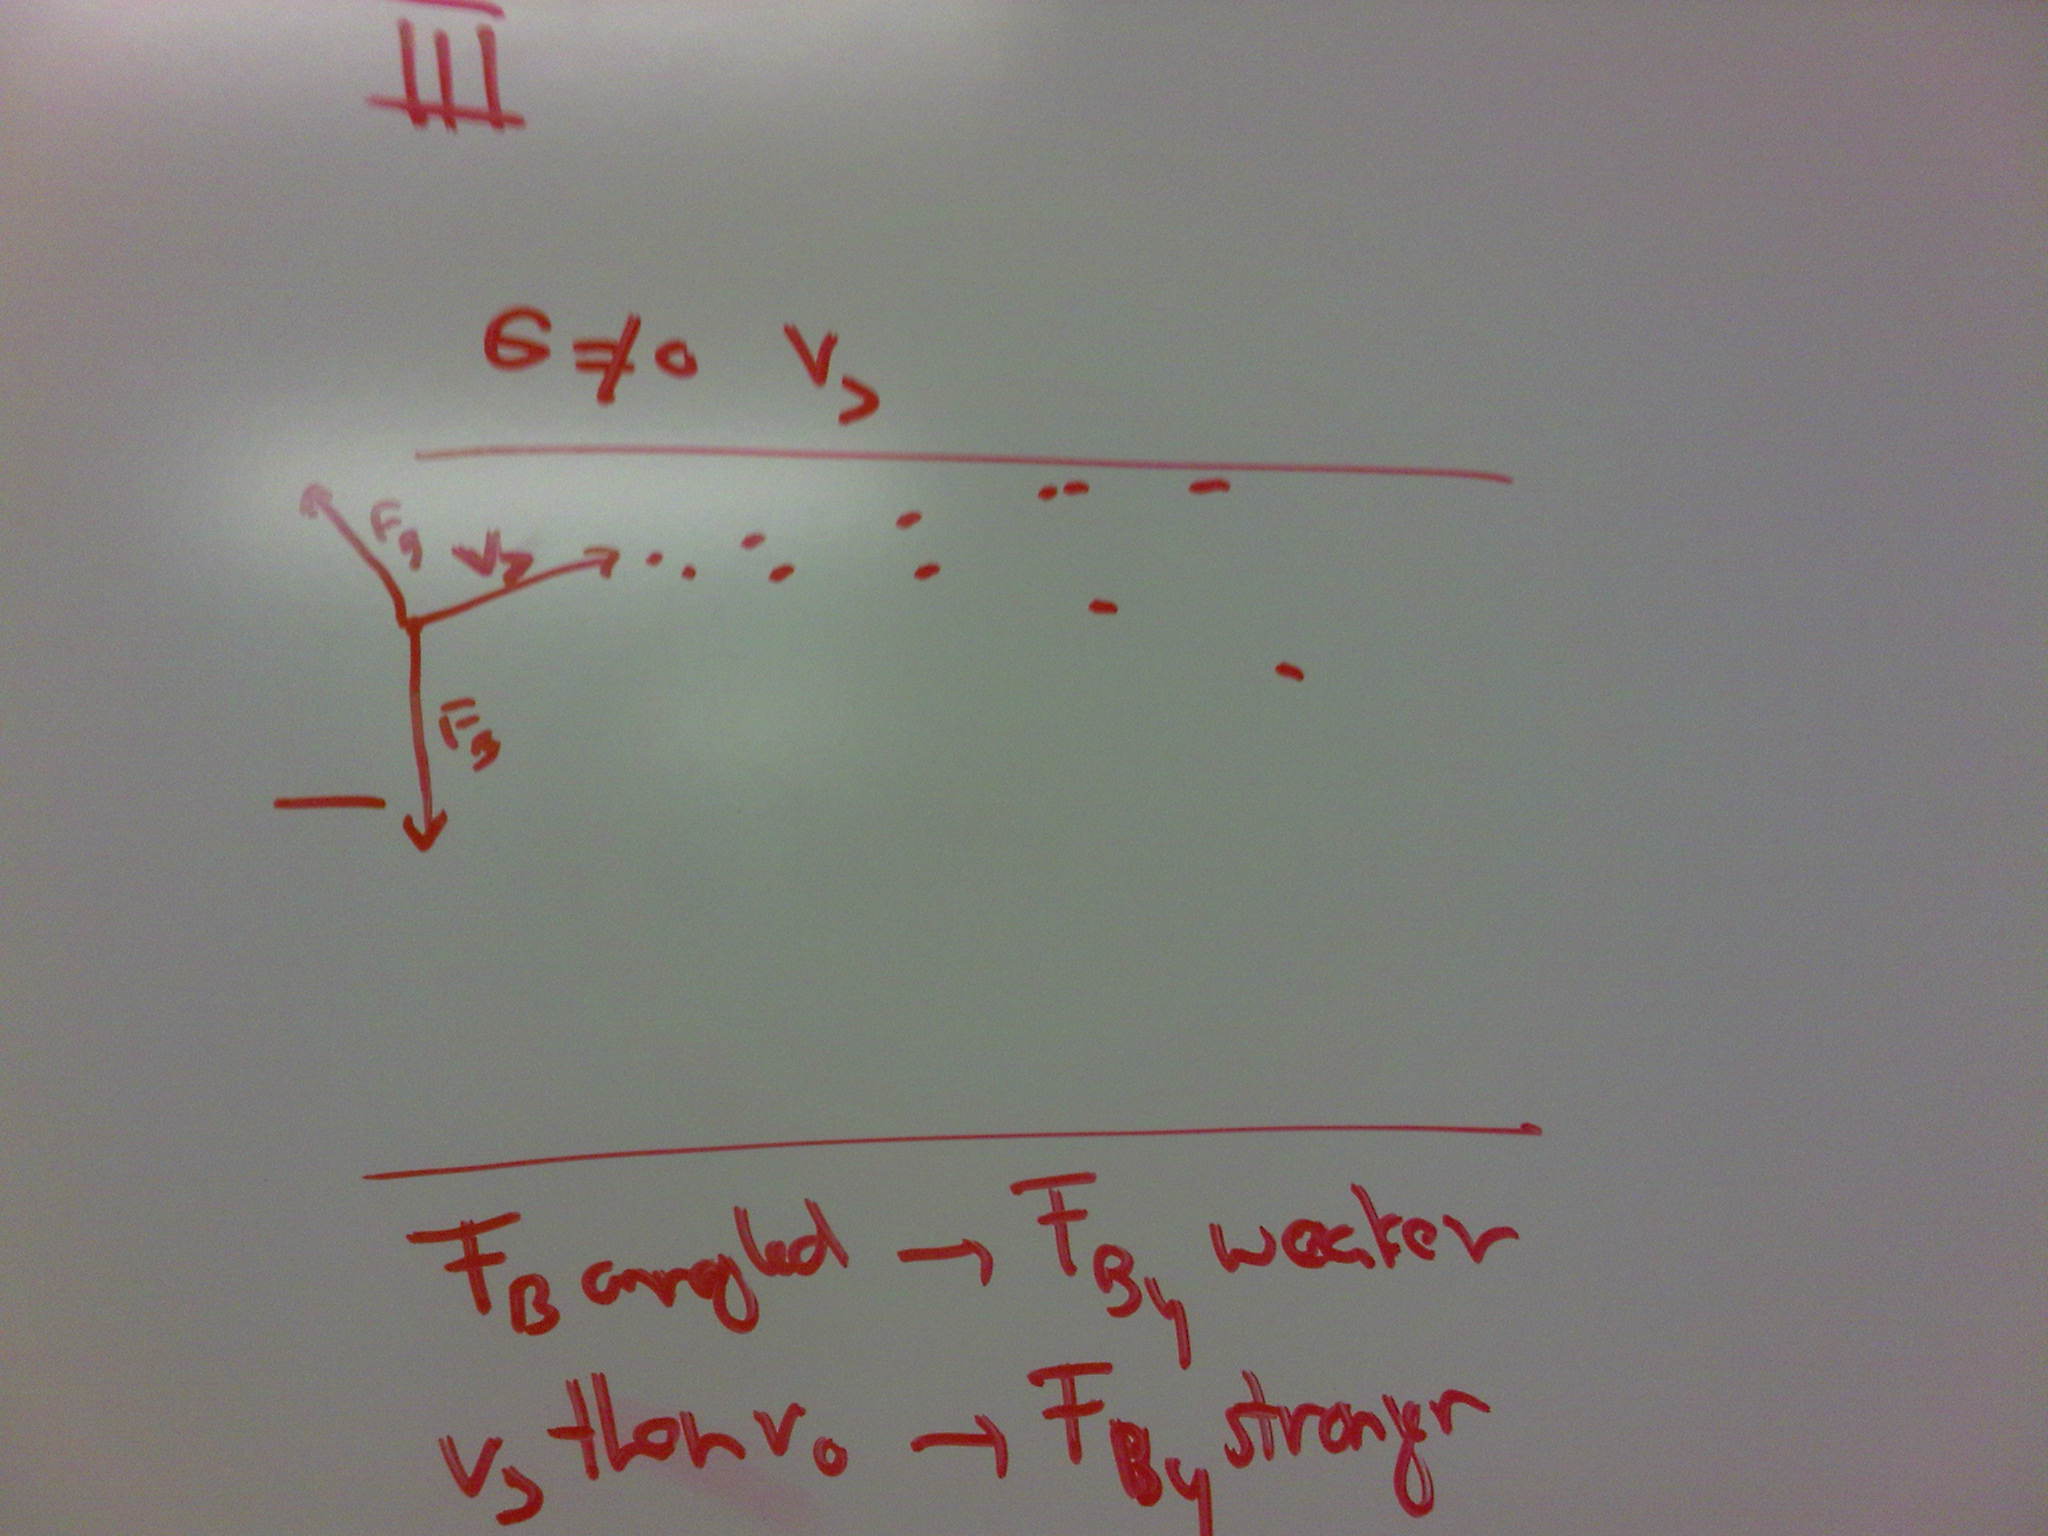 III
6 ≠ 0 V>
F9
V>
FB
FB angled → FBy weaker
V> than v0 → FBy stronger